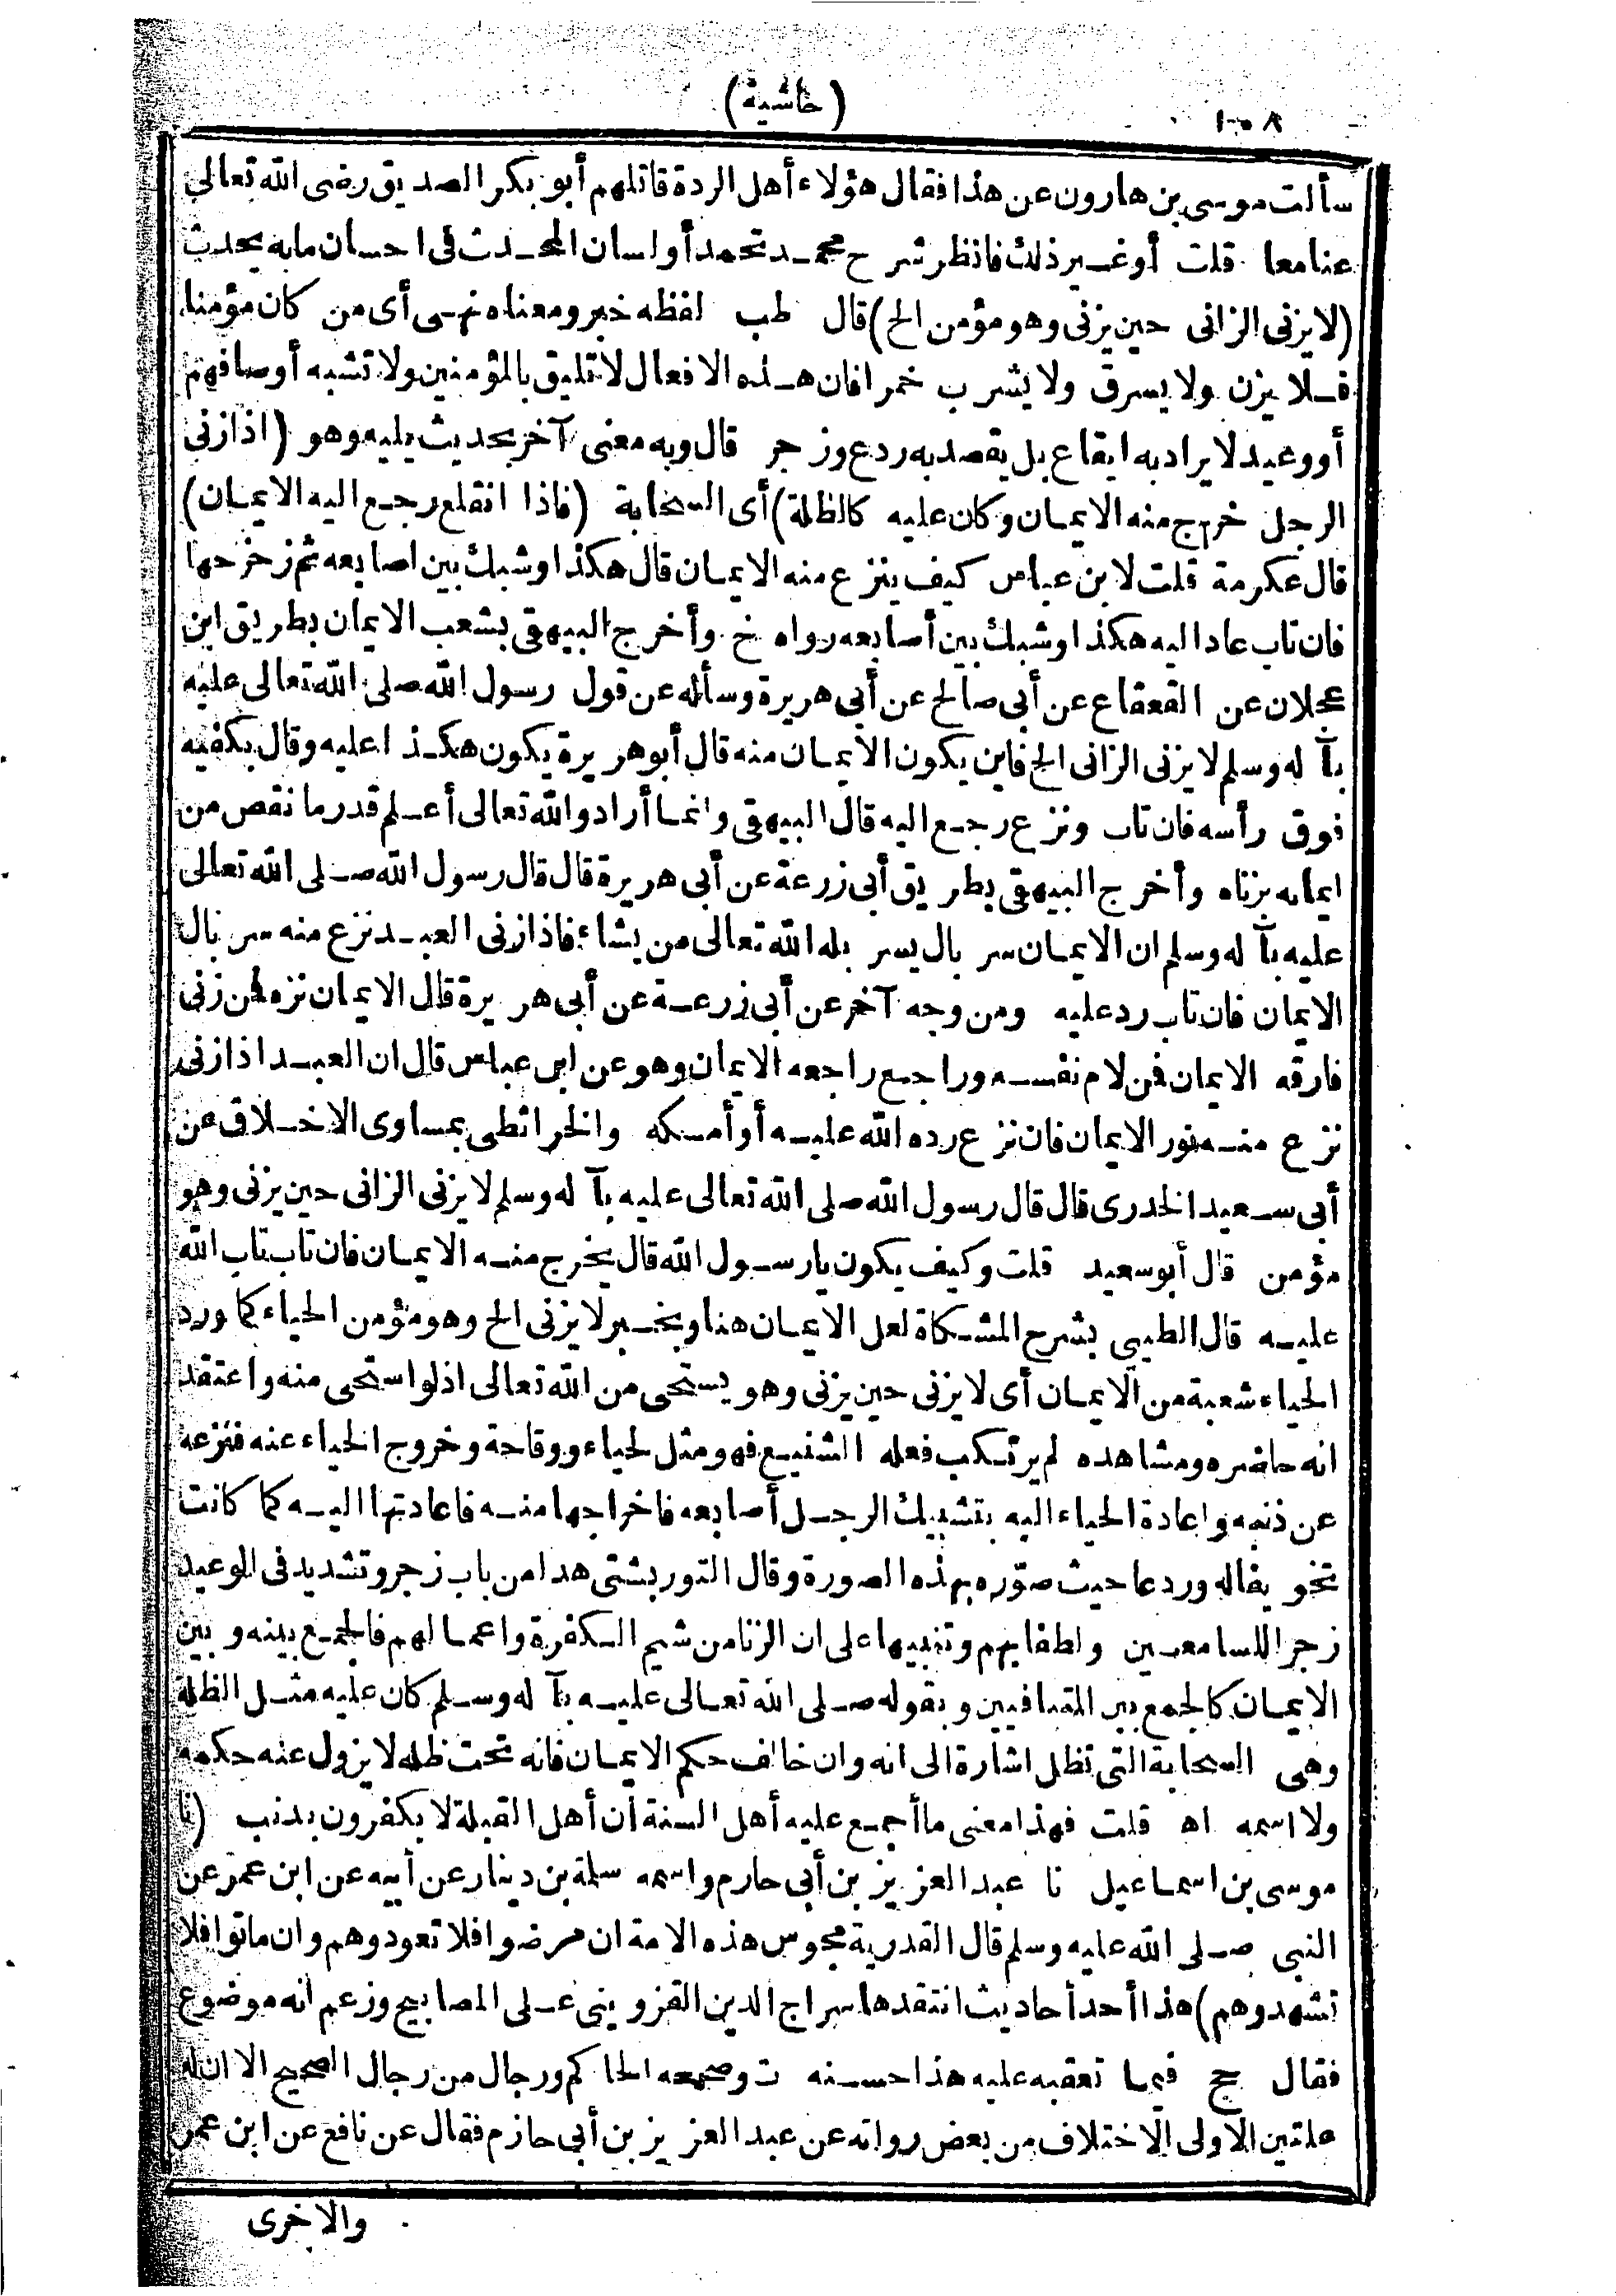 ١٠٨
(حاشية)
سألت موسى بن هارون عن هذا فقال هؤلاء أهل الردة قاتلهم أبو بكر الصديق رضى الله تعالى
عنا معا قلت أوغير ذلك فانظر شرح محمد تحمد أولسان المحدث فى احسان مابه يحدث
(لا يزنى الزانى حين يزنى وهو مؤمن الخ) قال طب لفظه خبر ومعناه نهى أى من كان مؤمنا
فلا يزن ولا يسرق ولا يشرب خمرا فان هذه الافعال لا تليق بالمؤمنين ولا تشبه أوصافهم
أو وعيد لا يراد به ايقاع بل يقصد به ردع وزجر قال وبه معنى آخر بحديث يليه وهو (اذا زنى
الرجل خرج منه الايمان وكان عليه كالظلة) أى السحابة (فاذا انقلع رجع اليه الايمان)
قال عكرمة قلت لابن عباس كيف ينزع منه الايمان قال هكذا وشبك بين اصابعه ثم زحزحها
فان تاب عاد اليه هكذا وشبك بين أصابعه رواه خ وأخرج البيهقى بشعب الايمان بطريق ابن
عجلان عن القعقاع عن أبى صالح عن أبى هريرة وسأله عن قول رسول الله صلى الله تعالى عليه
بآله وسلم لا يزنى الزانى الخ فاين يكون الايمان منه قال أبو هريرة يكون هكذا عليه وقال بكفيه
فوق رأسه فان تاب ونزع رجع اليه قال البيهقى وانما أراد والله تعالى أعلم قدر ما نقص من
ايمانه بزناه وأخرج البيهقى بطريق أبى زرعة عن أبى هريرة قال قال رسول الله صلى الله تعالى
عليه بآله وسلم ان الايمان سربال يسربله الله تعالى من يشاء فاذا زنى العبد نزع منه سربال
الايمان فان تاب رد عليه ومن وجه آخر عن أبى زرعة عن أبى هريرة قال الايمان نزه فمن زنى
فارقه الايمان فمن لام نفسه وراجع راجعه الايمان وهو عن ابن عباس قال ان العبد اذا زنى
نزع منه نور الايمان فان نزع رده الله عليه أو أمسكه والخرائطى بمساوى الاخلاق عن
أبى سعيد الخدرى قال قال رسول الله صلى الله تعالى عليه بآله وسلم لا يزنى الزانى حين يزنى وهو
مؤمن قال أبو سعيد قلت وكيف يكون يا رسول الله قال يخرج منه الايمان فان تاب تاب الله
عليه قال الطيبى بشرح المشكاة لعل الايمان هنا وبخبر لا يزنى الخ وهو مؤمن الحياء كما ورد
الحياء شعبة من الايمان أى لا يزنى حين يزنى وهو يستحى من الله تعالى اذ لو استحى منه واعتقد
انه حاضره ومشاهده لم يرتكب فعله الشنيع فهو مثل لحياء ووقاحة وخروج الحياء عنه فنزعه
عن ذنبه واعادة الحياء اليه بتشبيك الرجل أصابعه فاخراجها منه فاعادتها اليه كما كانت
تخويفا له وردعا حيث صوّره بهذه الصورة وقال التوربشتى هذا من باب زجر وتشديد فى الوعيد
زجرا للسامعين ولطفا بهم وتنبيها على ان الزنا من شيم الكفرة واعمالهم فالجمع بينه وبين
الايمان كالجمع بين المتنافيين وبقوله صلى الله تعالى عليه بآله وسلم كان عليه مثل الظلة
وهى السحابة التى تظل اشارة الى انه وان خالف حكم الايمان فانه تحت ظله لا يزول عنه حكمه
ولا اسمه اه قلت فهذا معنى ما أجمع عليه أهل السنة أن أهل القبلة لا يكفرون بذنب (نا
موسى بن اسماعيل نا عبد العزيز بن أبى حازم واسمه سلمة بن دينار عن أبيه عن ابن عمر عن
النبى صلى الله عليه وسلم قال القدرية مجوس هذه الامة ان مرضوا فلا تعودوهم وان ماتوا فلا
تشهدوهم) هذا أحد أحاديث انتقدها سراج الدين القزوينى على المصابيح وزعم انه موضوع
فقال حج فيما تعقبه عليه هذا حسنه ت وصححه الحاكم ورجال من رجال الصحيح الا ان له
علتين الاولى الاختلاف من بعض رواته عن عبد العزيز بن أبى حازم فقال عن نافع عن ابن عمر
والاخرى